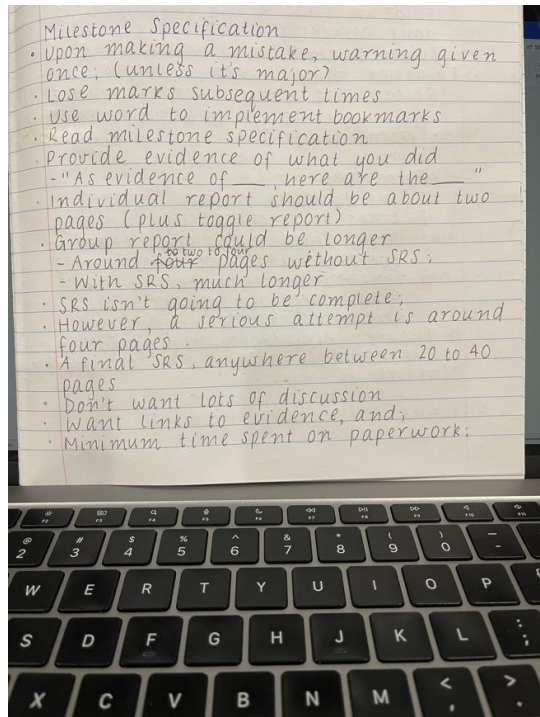 Milestone Specification
· Upon making a mistake, warning given
once; (unless it's major)
· Lose marks subsequent times
· Use word to implement bookmarks
· Read milestone specification
· Provide evidence of what you did
- "As evidence of ___, here are the ___ "
· Individual report should be about two
pages (plus toggle report)
· Group report could be longer
to two to four
- Around four pages without SRS;
- With SRS, much longer
· SRS isn't going to be complete;
· However, a serious attempt is around
four pages
· A final SRS, anywhere between 20 to 40
pages
· Don't want lots of discussion
· Want links to evidence, and;
· Minimum time spent on paperwork;
F2 F3 F4 F5 F6 F7 F8 F9 F10 F11
@ # $ % ^ & * ( ) _
2 3 4 5 6 7 8 9 0 -
W E R T Y U I O P
S D F G H J K L : ;
X C V B N M < , > .